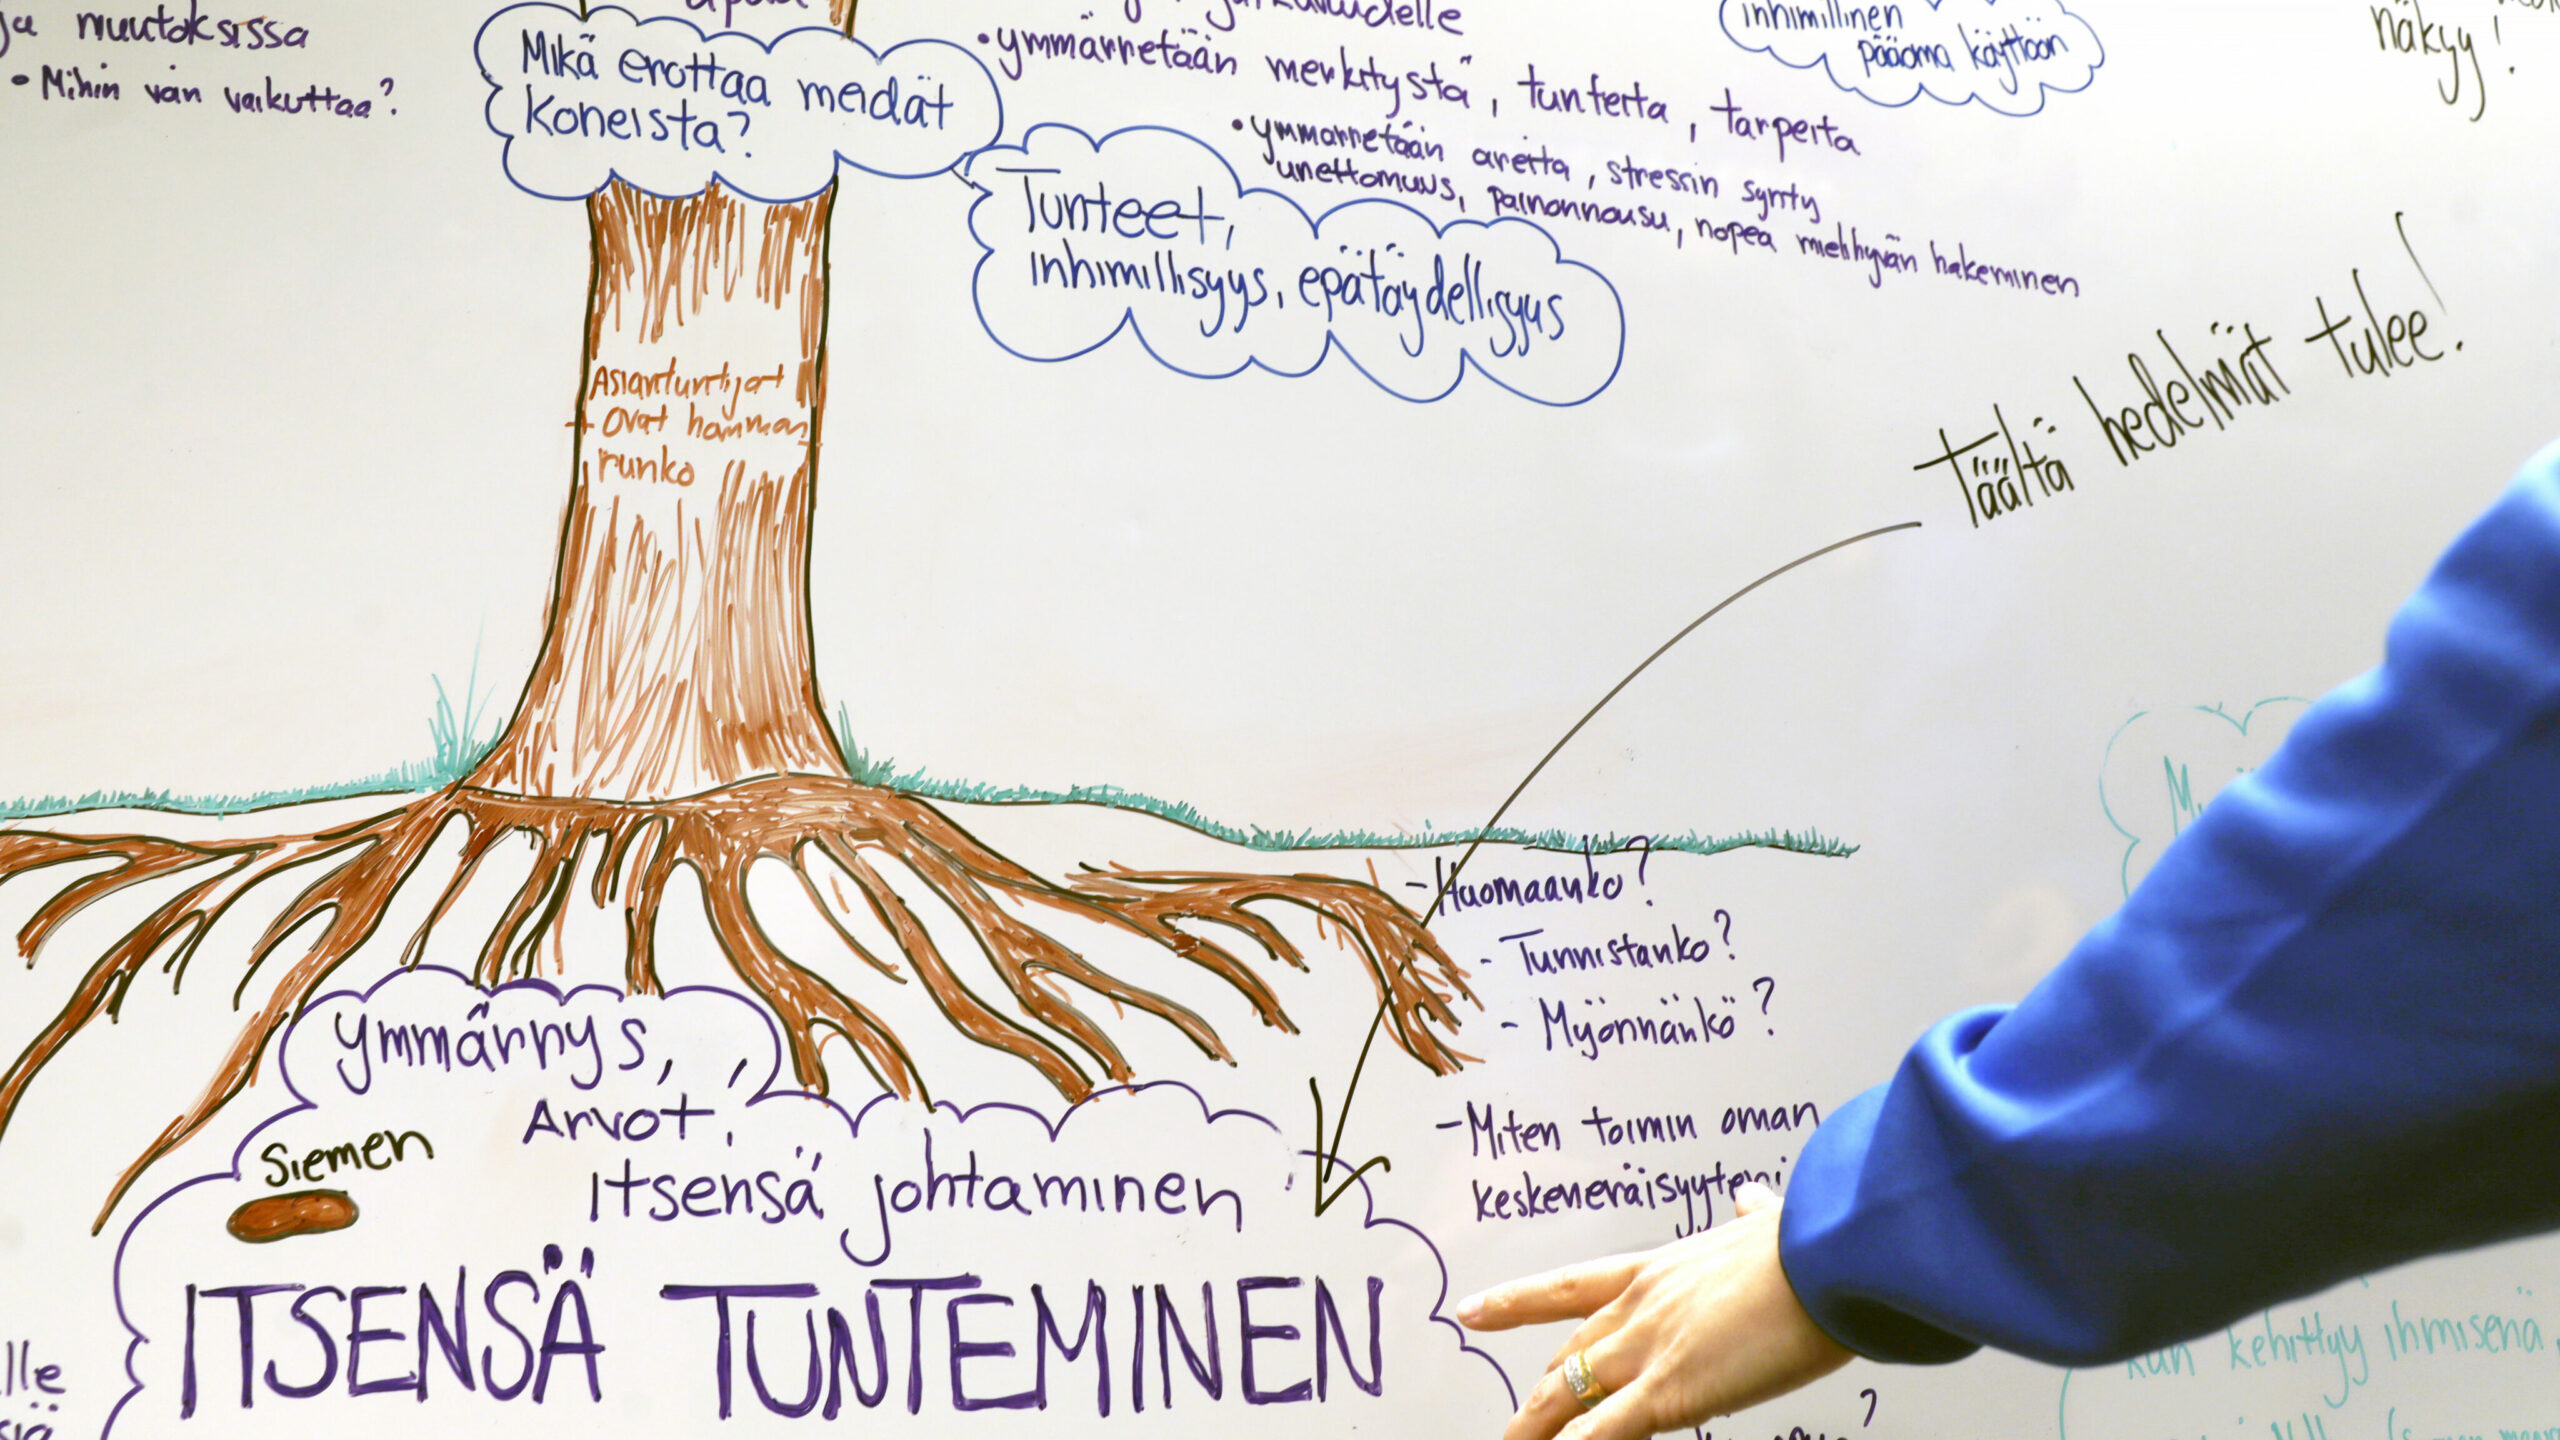 muutoksissa
• Mihin voin vaikuttaa?
Mikä erottaa meidät
koneista?
• ymmärretään merkitystä, tunteita, tarpeita
• ymmärretään oireita, stressin synty
unettomuus, painonnousu, nopea mielihyvän hakeminen
inhimillinen
pääoma käyttöön
näkyy!
Tunteet,
inhimillisyys, epätäydellisyys
Asiantuntijat
ovat
runko
Täältä hedelmät tulee!
- Huomaanko?
- Tunnistanko?
- Myönnänkö?
- Miten toimin oman
Ymmärrys,
Arvot,
Siemen
itsensä johtaminen
ITSENSÄ TUNTEMINEN
kun kehittyy ihmisenä,